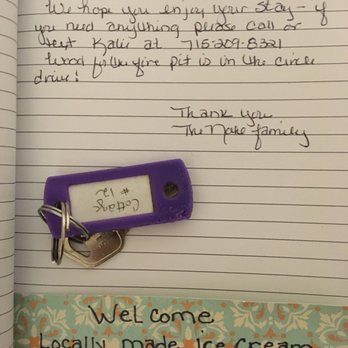 We hope you enjoy your stay - if
you need anything please call or
text Kalie at 715-209-8321
Wood for the fire pit is in the circle
drive!
Thank you
The Nahe family
Cottage
# 12
Welcome
Locally made Ice Cream